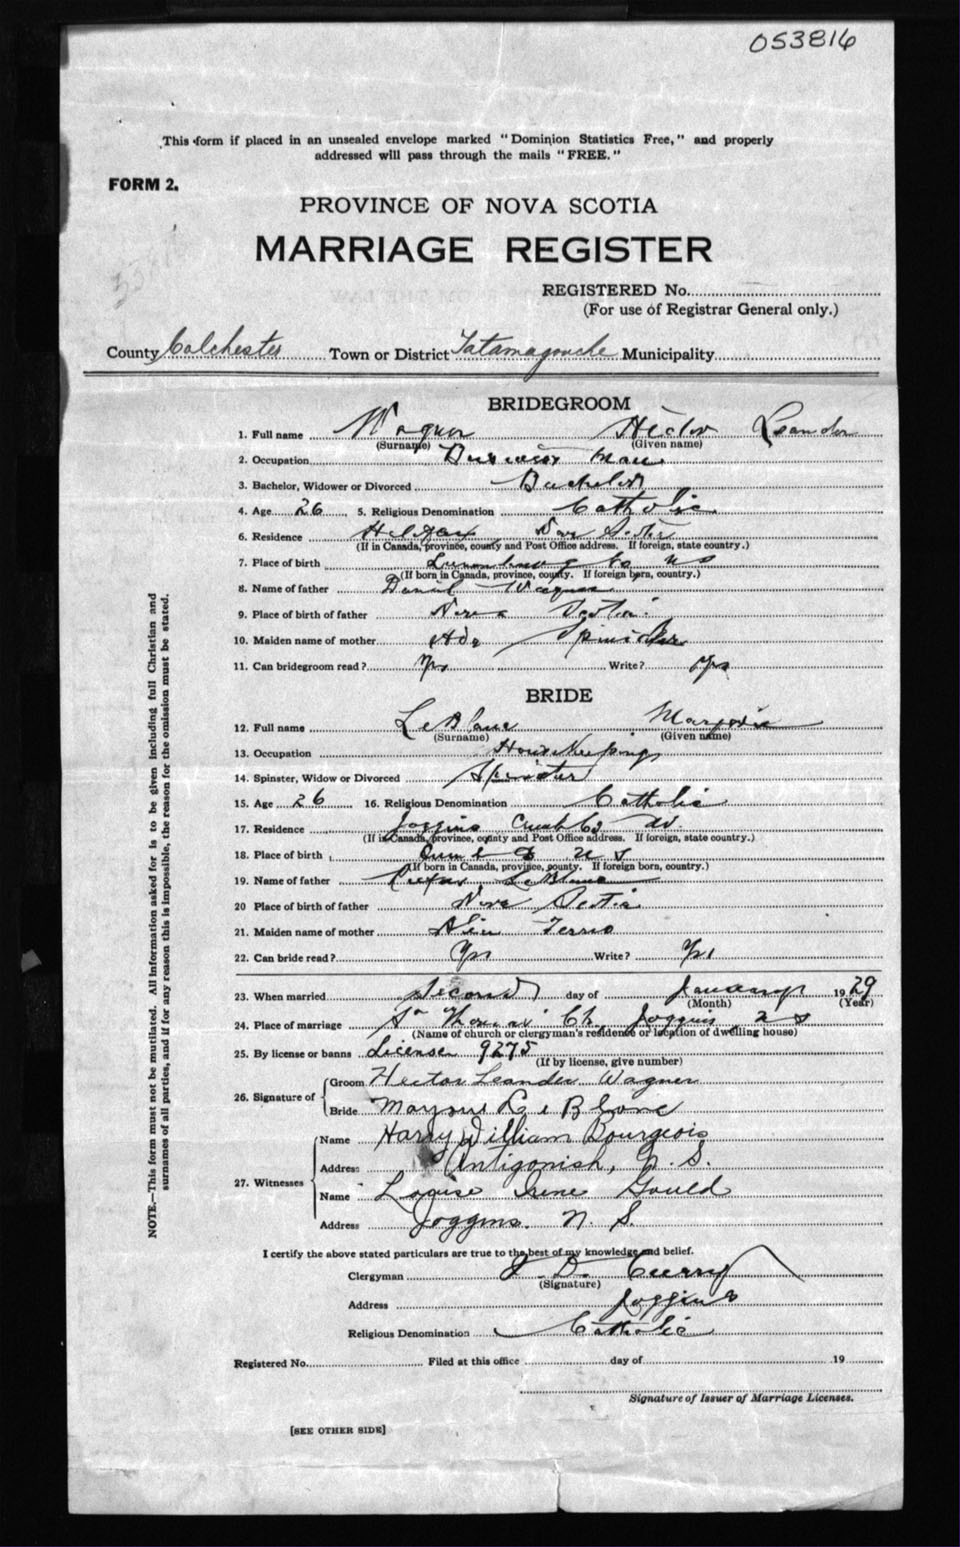 053816
This form if placed in an unsealed envelope marked "Dominion Statistics Free," and properly
addressed will pass through the mails "FREE."
FORM 2.
PROVINCE OF NOVA SCOTIA
MARRIAGE REGISTER
REGISTERED No.
(For use of Registrar General only.)
County Colchester Town or District Tatamagouche Municipality
BRIDEGROOM
1. Full name Wagner Hector Leander
(Surname) (Given name)
2. Occupation Business Man
3. Bachelor, Widower or Divorced Bachelor
4. Age 26 5. Religious Denomination Catholic
6. Residence Halifax Nova Scotia
(If in Canada, province, county and Post Office address. If foreign, state country.)
7. Place of birth Lunenburg Co NS
(If born in Canada, province, county. If foreign born, country.)
8. Name of father Daniel Wagner
9. Place of birth of father Nova Scotia
10. Maiden name of mother Ada
11. Can bridegroom read? Yes Write? Yes
BRIDE
12. Full name LeBlanc Marjorie
(Surname) (Given name)
13. Occupation House Keeping
14. Spinster, Widow or Divorced Spinster
15. Age 26 16. Religious Denomination Catholic
17. Residence Joggins Cumb Co NS
(If in Canada, province, county and Post Office address. If foreign, state country.)
18. Place of birth Cumb Co NS
(If born in Canada, province, county. If foreign born, country.)
19. Name of father LeBlanc
20 Place of birth of father Nova Scotia
21. Maiden name of mother
22. Can bride read? Yes Write? Yes
23. When married Second day of January 1929
(Month) (Year)
24. Place of marriage St Thomas' Ch. Joggins N S
(Name of church or clergyman's residence or location of dwelling house)
25. By license or banns License 9275
(If by license, give number)
26. Signature of Groom Hector Leander Wagner
Bride Marjorie LeBlanc
27. Witnesses Name Harry William Bourgeois
Address Antigonish, N. S.
Name Louise Irene Gould
Address Joggins. N. S.
I certify the above stated particulars are true to the best of my knowledge and belief.
Clergyman J D. Curry
(Signature)
Address Joggins
Religious Denomination Catholic
Registered No. Filed at this office day of 19
Signature of Issuer of Marriage Licenses.
[SEE OTHER SIDE]
NOTE.—This form must not be mutilated. All information asked for is to be given including full Christian and
surnames of all parties, and if for any reason this is impossible, the reason for the omission must be stated.